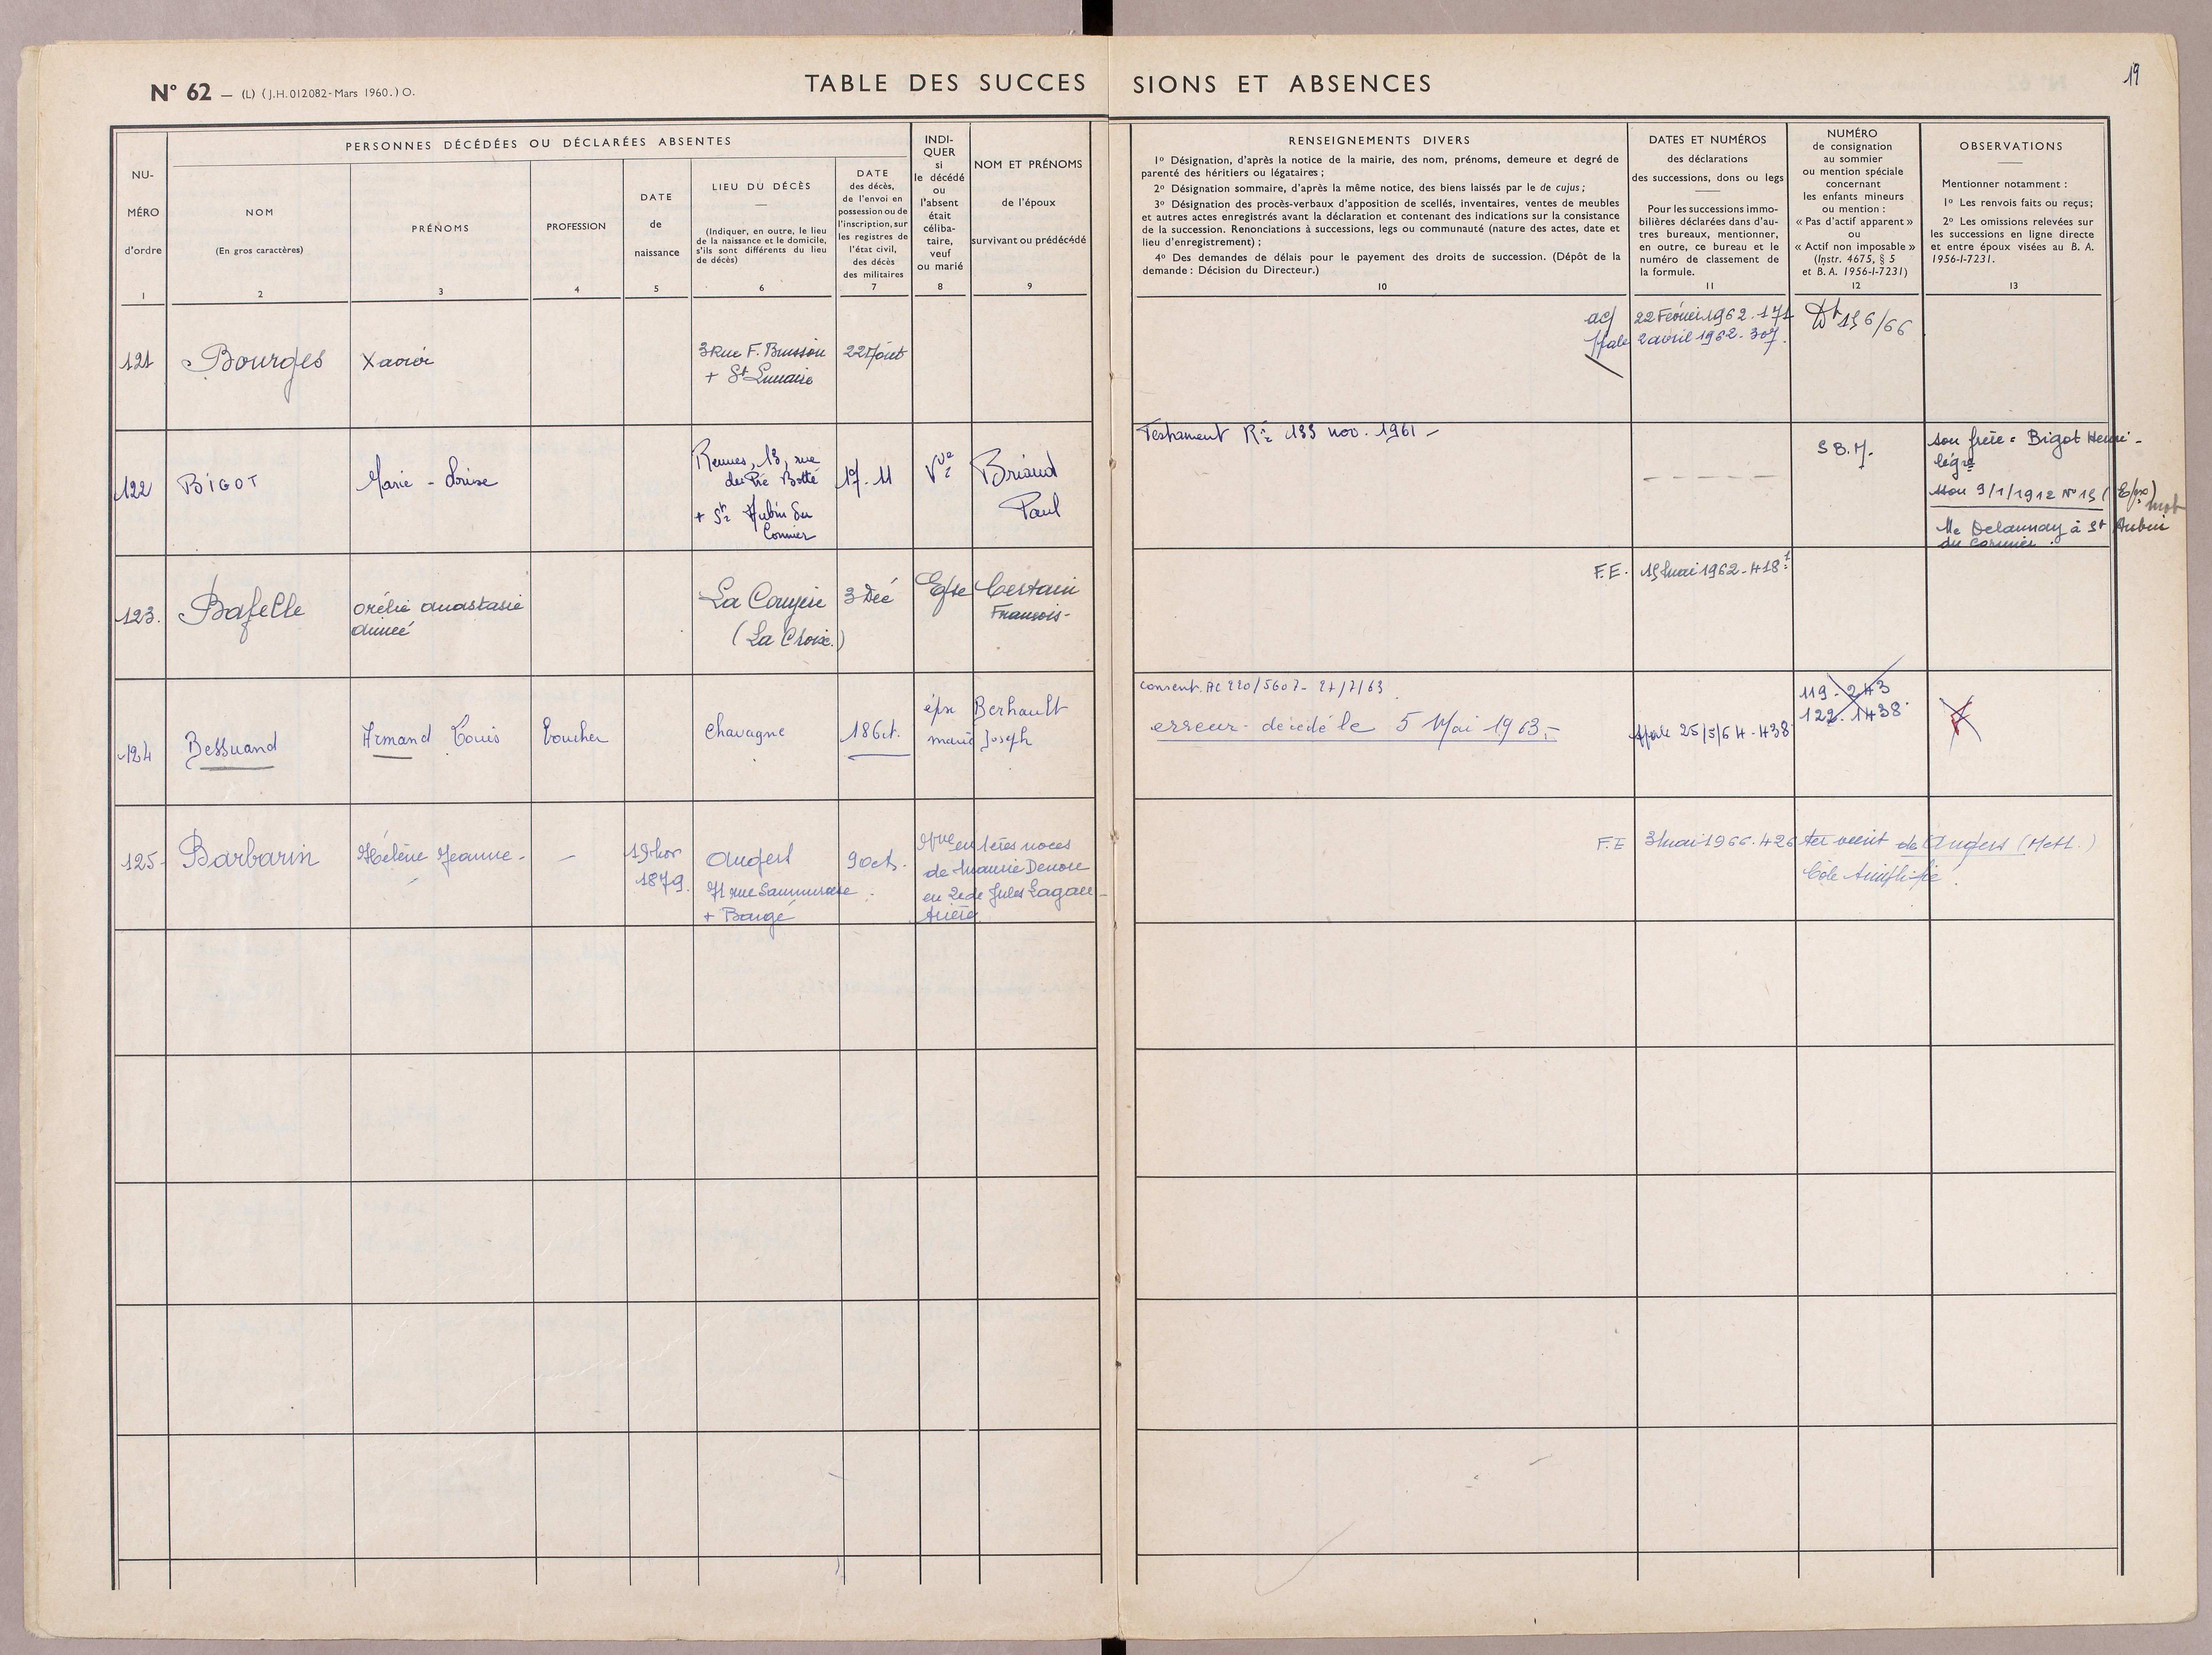 N° 62 — (L) (J.H. 012082 - Mars 1960.) O.
TABLE DES SUCCESSIONS ET ABSENCES
19
NU-
MÉRO
d'ordre
1
PERSONNES DÉCÉDÉES OU DÉCLARÉES ABSENTES
NOM
(En gros caractères)
2
PRÉNOMS
3
PROFESSION
4
DATE
de
naissance
5
LIEU DU DÉCÈS
—
(Indiquer, en outre, le lieu
de la naissance et le domicile,
s'ils sont différents du lieu
de décès)
6
DATE
des décès,
de l'envoi en
possession ou de
l'inscription, sur
les registres de
l'état civil,
des décès
des militaires
7
INDI-
QUER
si
le décédé
ou
l'absent
était
céliba-
taire,
veuf
ou marié
8
NOM ET PRÉNOMS
de l'époux
survivant ou prédécédé
9
RENSEIGNEMENTS DIVERS
1° Désignation, d'après la notice de la mairie, des nom, prénoms, demeure et degré de
parenté des héritiers ou légataires ;
2° Désignation sommaire, d'après la même notice, des biens laissés par le de cujus ;
3° Désignation des procès-verbaux d'apposition de scellés, inventaires, ventes de meubles
et autres actes enregistrés avant la déclaration et contenant des indications sur la consistance
de la succession. Renonciations à successions, legs ou communauté (nature des actes, date et
lieu d'enregistrement) ;
4° Des demandes de délais pour le payement des droits de succession. (Dépôt de la
demande : Décision du Directeur.)
10
DATES ET NUMÉROS
des déclarations
des successions, dons ou legs
Pour les successions immo-
bilières déclarées dans d'au-
tres bureaux, mentionner,
en outre, ce bureau et le
numéro de classement de
la formule.
11
NUMÉRO
de consignation
au sommier
ou mention spéciale
concernant
les enfants mineurs
ou mention :
« Pas d'actif apparent »
ou
« Actif non imposable »
(Instr. 4675, § 5
et B. A. 1956-I-7231)
12
OBSERVATIONS
Mentionner notamment :
1° Les renvois faits ou reçus ;
2° Les omissions relevées sur
les successions en ligne directe
et entre époux visées au B. A.
1956-I-7231.
13
121
Bourges
Xavier
3 Rue F. Buisson
+ St Lunaire
22 Août
22 Février 1962. 171
2 avril 1962. 307.
156/66
122
BIGOT
Marie - Louise
Rennes, 13, rue
du Pré Botté
+ St Aubin du
Cormier
17. 11
Vve
Briand
Paul
Testament Rs 133 nov. 1961 -
S B. M.
son frère = Bigot Henri -
légre
9/1/1912 N° 15
Me Delaunay à St Aubin
du Cormier.
123.
Bafelle
Orélie Anastasie
Aimée
La Couyère
(La Croix.)
3 Déc
Epse
Certain
François -
F.E.
15 mai 1962 - 418
124
Bessuand
Armand Louis
boucher
Chavagne
18 Oct.
épx
marié
Berhault
Joseph
consent. AC 220/5607 - 27/7/63
erreur - décédé le 5 Mai 1963. -
25/5/64 - 438
119 - 243
122. 1438.
125-
Barbarin
Hélène Jeanne -
—
19 nov
1879.
Angers
71 rue Saumuroise
+ Baugé
9 oct -
Vve en 1ères noces
de Maurice Denou
en 2e de Jules Lagau-
trière
F.E
3 mai 1966. 426
de Angers
Côle simplifié